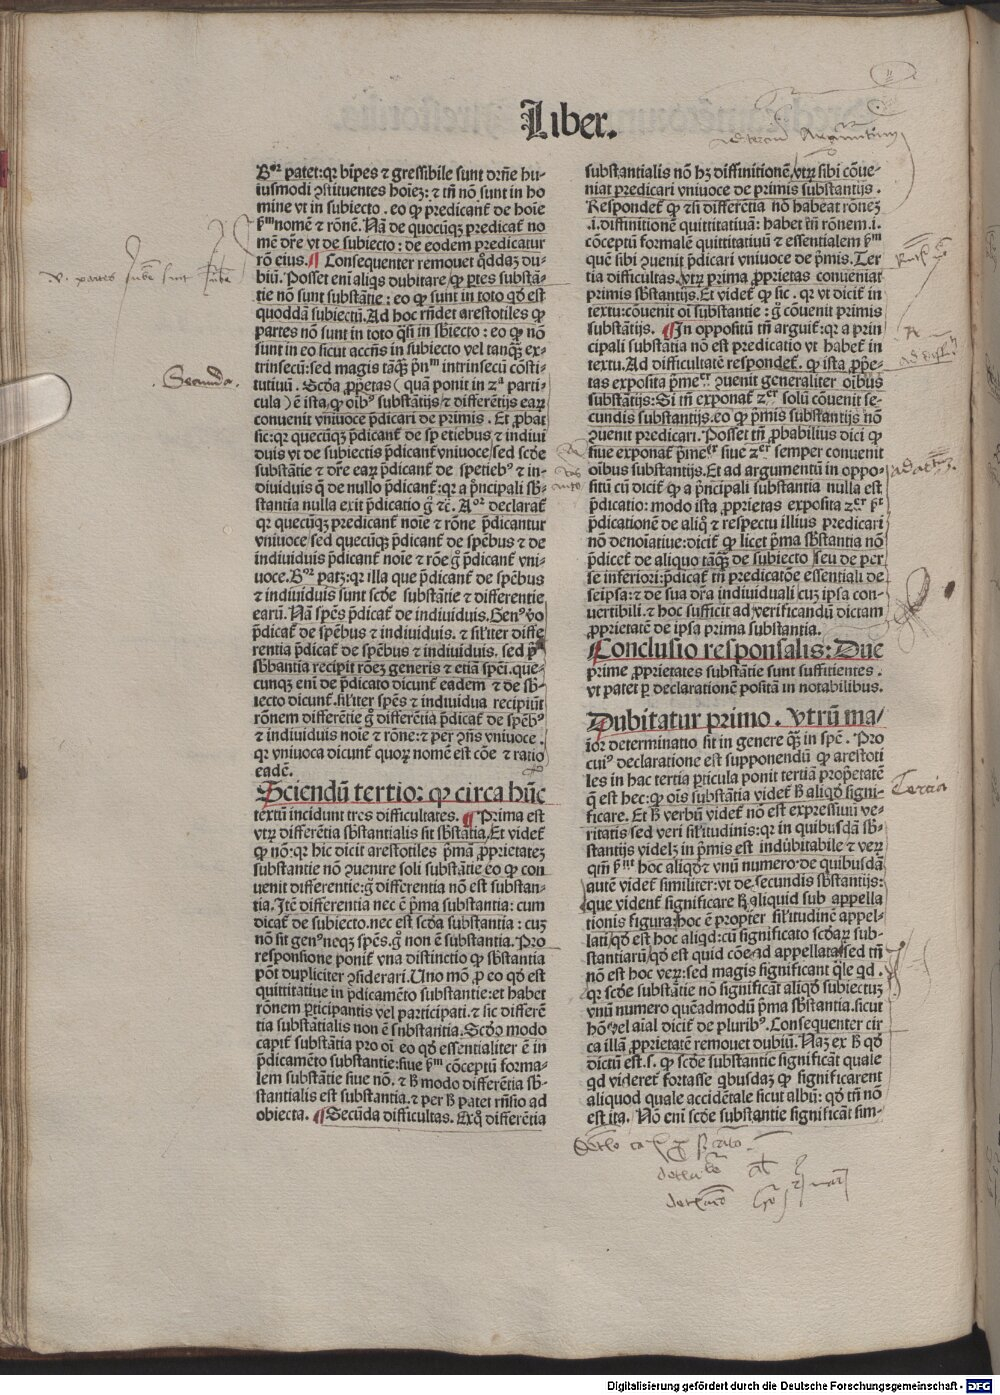 Liber.
ad terciū Argumentum
Bᵒʳ patet: qꝛ bipes ⁊ gressibile sunt drñe hu-
iusmodi ↄstituentes hoiez: ⁊ tñ nō sunt in ho
mine vt in subiecto . eo ꝙ predicant̄ de hoie
ẜm nomē ⁊ rōnē. Nā de quocūqꝫ predicat̄ no
mē dr̄e vt de subiecto : de eodem predicatur
rō eius. ¶ Consequenter remouet qͦddaꝫ du-
biū. Posset eni aliqs dubitare, ꝙ ꝑtes substā-
tie nō sunt substātie : eo ꝙ sunt in toto qd̄ est
quoddā subiectū. Ad hoc rn̄det arestotiles ꝙ
partes nō sunt in toto qͣsi in sb̄iecto : eo ꝙ nō
sunt in eo sicut accn̄s in subiecto vel tanqꝫ ex-
trinsecū: sed magis tāqꝫ pͥnᵐ intrinsecū cōsti-
tutiuū . Scd̄a ꝓp̄etas ( quā ponit in zᵃ parti-
cula ) ē ista, ꝙ oib⁹ substātijs ⁊ differētijs eaꝝ
conuenit vniuoce p̄dicari de primis . Et ꝓbat̄
sic: qꝛ quecūqꝫ p̄dicant̄ de sp etiebus ⁊ indiui
duis vt de subiectis p̄dicant̄ vniuoce / sed scd̄e
substātie ⁊ dr̄e eaꝝ p̄dicant̄ de spetieb⁹ ⁊ in-
diuiduis q̄ de nullo p̄dicant̄: qꝛ a pͥncipali sb̄-
stantia nulla erit p̄dicatio gͦ ⁊c̄. Aᵒʳ declarat̄
qꝛ quecūqꝫ predicant̄ noie ⁊ rōne p̄dicantur
vniuoce / sed quecūqꝫ p̄dicant̄ de spēbus ⁊ de
indiuiduis p̄dicant̄ noie ⁊ rōe gͦ p̄dicant̄ vni-
uoce. Bᵒʳ patꝫ: qꝛ illa que p̄dicant̄ de spēbus
⁊ indiuiduis sunt scd̄e substātie ⁊ differentie
earū. Nā spēs p̄dicat̄ de indiuiduis. Gen⁹ v̄o
p̄dicat̄ de spēbus ⁊ indiuiduis. ⁊ sil'iter diffe
rentia p̄dicat̄ de spēbus ⁊ indiuiduis. sed pͥᵃ
sb̄bantia recipit rōeꝫ generis ⁊ etiā spēi. que-
cunqꝫ eni de p̄dicato dicunt̄ eadem ⁊ de sb̄-
iecto dicunt̄. sil'iter spēs ⁊ indiuidua recipiūt
rōnem differētie gͦ differētia p̄dicat̄ de spēb⁹
⁊ indiuiduis noie ⁊ rōne: ⁊ per ↄn̄s vniuoce .
qꝛ vniuoca dicunt̄ quoꝝ nomē est cōe ⁊ ratio
eadē.
Sciendū tertio: ꝙ circa hūc
textū incidunt tres difficultates. ¶ Prima est
vtꝝ differētia sb̄stantialis sit sb̄statīa, Et videt̄
ꝙ nō: qꝛ hic dicit arestotiles p̄mā ꝓprietateꝫ
substantie nō ↄuenire soli substātie eo ꝙ con
uenit differentie: gͦ differentia nō est substan-
tia. Itē differentia nec ē p̄ma substantia: cum
dicat̄ de subiecto. nec est scd̄a substantia : cuꝫ
nō sit gen⁹ neqꝫ spēs. gͦ non ē substantia. Pro
responsione ponit̄ vna distinctio ꝙ sb̄stantia
pōt dupliciter ↄsiderari. Uno mō ꝓ eo qd̄ est
quittitatiue in p̄dicamēto substantie: et habet
rōnem ꝑticipantis vel participati. ⁊ sic differē
tia substātialis non ē substantia. Scd̄o modo
capit̄ substātia pro oī eo qd̄ essentialiter ē in
p̄dicamēto substantie: siue ẜm cōceptū forma-
lem substātie siue nō. ⁊ B modo differētia sb̄-
stantialis est substantia. ⁊ per B patet rn̄sio ad
obiecta. ¶ Secūda difficultas. Exqͦ differētia
substantialis nō hꝫ diffinitionē, vtꝝ sibi cōue-
niat predicari vniuoce de primis substantijs .
Respondet̄ ꝙ ⁊si differētia nō habeat rōneꝫ
.i. diffinitionē quittitatiuā: habet tn̄ rōnem .i.
cōceptū formalē quittitatiuū ⁊ essentialem ẜm
quē sibi ↄuenit p̄dicari vniuoce de p̄mis. Ter
tia difficultas, vtꝝ prima ꝓprietas conueniat
primis sb̄stantijs. Et videt̄ ꝙ sic . qꝛ vt dicit̄ in
textu: cōuenit oi substantie : gͦ cōuenit primis
substātijs. ¶ In oppositū tn̄ arguit̄: qꝛ a prin
cipali substātia nō est predicatio vt habet̄ in
textu. Ad difficultatē respondet̄. ꝙ ista ꝓp̄e-
tas exposita p̄meᵉʳ ↄuenit generaliter oibus
substātijs: Si tn̄ exponat̄ zᵉʳ solū cōuenit se-
cundis substantijs. eo ꝙ p̄mis substantijs nō
ↄuenit predicari. Posset tn̄ ꝓbabilius dici ꝙ
siue exponat̄ p̄meᵉʳ siue zᵉʳ semper conuenit
oibus substantijs. Et ad argumentū in oppo-
sitū cū dicit̄ ꝙ a p̄ncipali substantia nulla est
p̄dicatio: modo ista ꝓprietas exposita zᵉʳ ꝑ
p̄dicationē de aliqͦ ⁊ respectu illius predicari
nō denoīatiue: dicit̄ ꝙ licet p̄ma sb̄stantia nō
p̄dicet̄ de aliquo tāqꝫ de subiecto seu de per
se inferiori: p̄dicat̄ tn̄ predicatōe essentiali de
seipsa: ⁊ de sua dr̄a indiuiduali cuꝫ ipsa con-
uertibili. ⁊ hoc sufficit ad verificandū dictam
ꝓprietatē de ipsa prima substantia.
Conclusio responsalis: Due
prime ꝓprietates substātie sunt suffitientes .
vt patet ꝑ declarationē positā in notabilibus.
Dubitatur primo . Vtrū ma/
ior determinatio sit in genere qͣꝫ in spē . Pro
cui⁹ declaratione est supponendū ꝙ arestoti
les in hac tertia ꝑticula ponit tertiā prop̄etatē
q̄ est hec: ꝙ oīs substātia videt̄ B aliqd̄ signi-
ficare. Et B verbū videt̄ nō est expressiuū ve-
ritatis sed veri sil'itudinis: qꝛ in quibusdā sb̄-
stantijs videlꝫ in p̄mis est indubitabile ⁊ veꝝ
qm̄ ẜm hoc aliqd ⁊ vnū numero. de quibusdā
autē videt̄ similiter: vt de secundis sb̄stantijs:
que vident̄ significare B aliquid sub appella
tionis figura: hoc ē propter sil'itudinē appel-
lati / qd̄ est hoc aliqd: cū significato scd̄aꝝ sub-
stantiarū / qd̄ est quid cōe ad appellata / sed tn̄
nō est hoc veꝝ: sed magis significant qͣle qd .
qꝛ scd̄e substātie nō significāt aliqd̄ subiectuꝫ
vnū numero quēadmodū p̄ma sb̄stantia. sicut
hō vel aīal dicit̄ de plurib⁹. Consequenter cir
ca illā ꝓprietatē remouet dubiū. Naꝫ ex B qd̄
dictū est .s. ꝙ scd̄e substantie significāt quale
qd videret̄ fortasse qbusdaꝫ ꝙ significarent
aliquod quale accidētale sicut albū: qd̄ tn̄ nō
est ita. Nō eni scd̄e substantie significāt sim-
Secunda.
Tercia
Digitalisierung gefördert durch die Deutsche Forschungsgemeinschaft - DFG